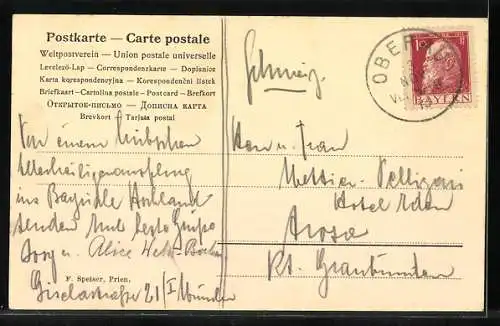 Postkarte — Carte postale
Weltpostverein — Union postale universelle
Levelező-Lap — Correspondenzkarte — Dopisnice
Karta korespondencyjna — Korespondenční lístek
Briefkaart — Cartolina postale — Postcard — Brefkort
Открытое-письмо — Дописна карта
Brevkort — Tarjeta postal
Schweiz
OBER
NOV
BAYERN
Von einem hübschen
Allerheiligenausflug
ins Bayrische Hochland
senden Ihnen beste Grüsse
u. Alice
F. Speiser, Prien.
Giselastraße 21/I München
Herrn u. Frau
Hotel Eden
Arosa
Kt. Graubünden